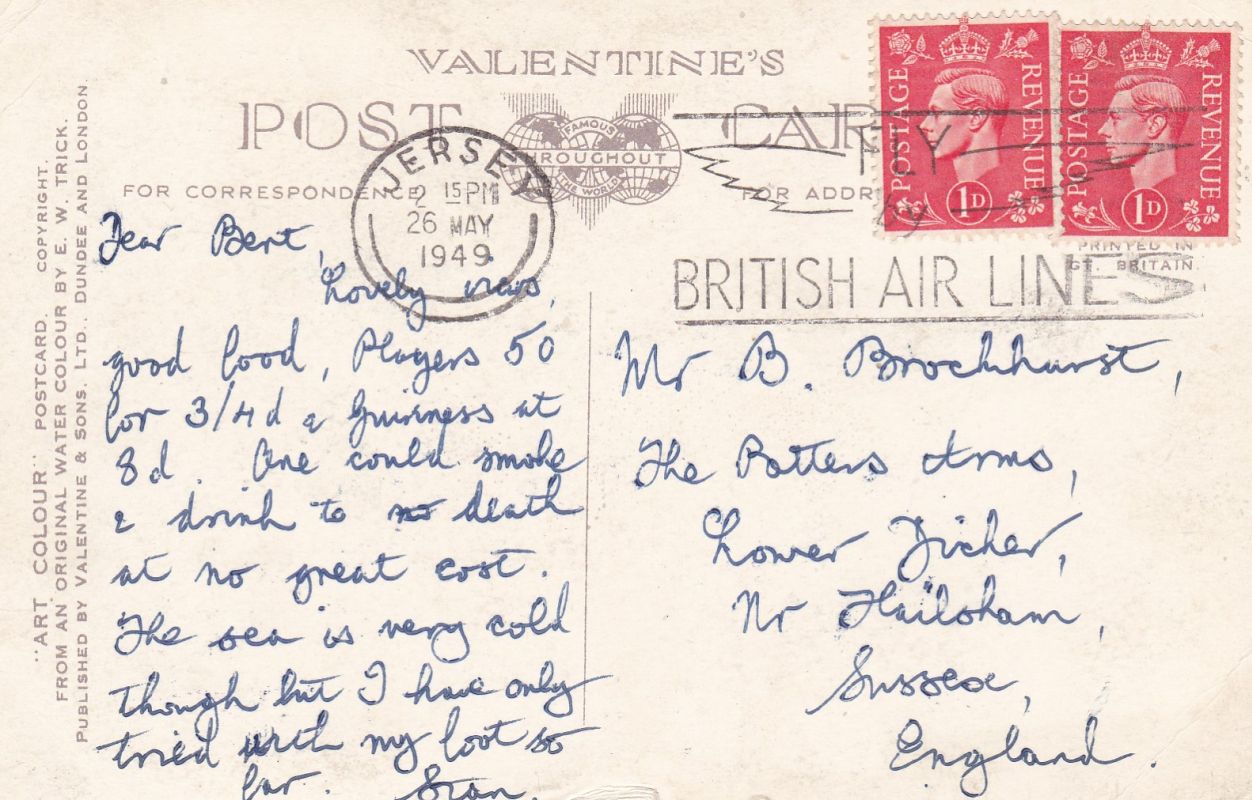 VALENTINE'S
POST CAR
FAMOUS
THROUGHOUT
THE WORLD
FOR CORRESPONDENCE
FOR ADDR
JERSEY
2 15 PM
26 MAY
1949
FLY
by
BRITISH AIR LINES
POSTAGE REVENUE
1D
POSTAGE REVENUE
1D
PRINTED IN
GT. BRITAIN.
"ART COLOUR" POSTCARD. COPYRIGHT.
FROM AN ORIGINAL WATER COLOUR BY E. W. TRICK.
PUBLISHED BY VALENTINE & SONS. LTD., DUNDEE AND LONDON
Dear Bert,
Lovely views,
good food, Players 50
for 3/4d & Guinness at
8d. One could smoke
& drink to no death
at no great cost.
The sea is very cold
though but I have only
tried with my foot so
far. Stan.
Mr B. Brockhurst,
The Potters Arms,
Lower Dicker,
Nr Hailsham,
Sussex,
England.